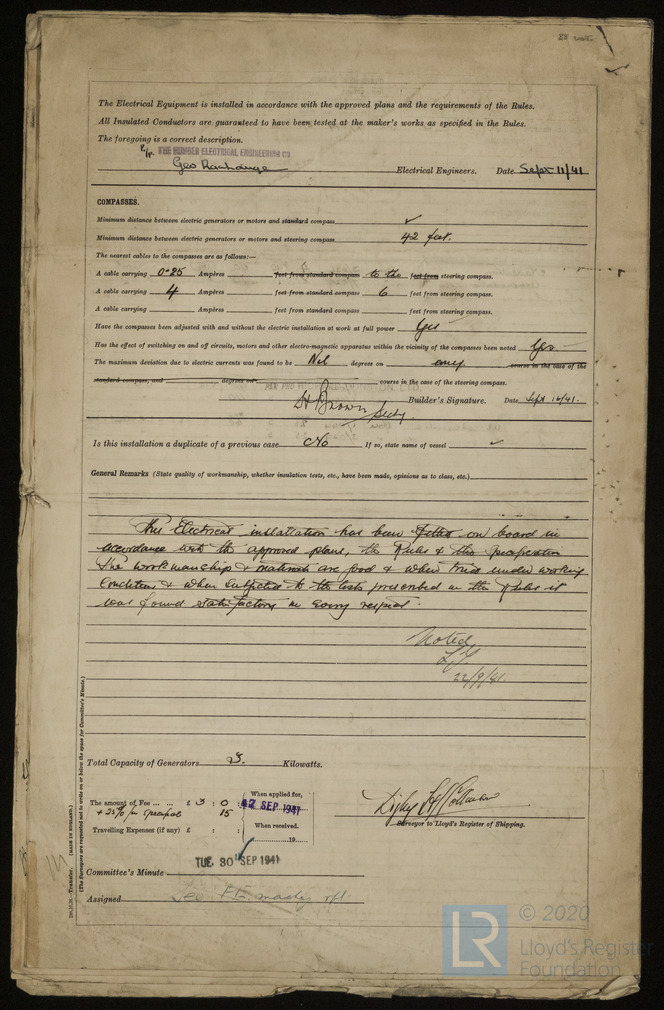 The Electrical Equipment is installed in accordance with the approved plans and the requirements of the Rules.
All Insulated Conductors are guaranteed to have been tested at the maker's works as specified in the Rules.
The foregoing is a correct description.
THE HUMBER ELECTRICAL ENGINEERING CO
Geo Electrical Engineers. Date Sept 11/41
COMPASSES.
Minimum distance between electric generators or motors and standard compass ✓
Minimum distance between electric generators or motors and steering compass 42 feet.
The nearest cables to the compasses are as follows:—
A cable carrying 0.25 Ampères feet from standard compass to the feet from steering compass.
A cable carrying 4 Ampères feet from standard compass 6 feet from steering compass.
A cable carrying Ampères feet from standard compass feet from steering compass.
Have the compasses been adjusted with and without the electric installation at work at full power Yes
Has the effect of switching on and off circuits, motors and other electro-magnetic apparatus within the vicinity of the compasses been noted Yes
The maximum deviation due to electric currents was found to be Nil degrees on any course in the case of the
standard compass, and degrees on course in the case of the steering compass.
H Brown Secty Builder's Signature. Date Sept 16/41.
Is this installation a duplicate of a previous case No If so, state name of vessel ✓
General Remarks (State quality of workmanship, whether insulation tests, etc., have been made, opinions as to class, etc.)
This Electrical installation has been fitted on board in
accordance with the approved plans, the Rules & the specification
The workmanship & materials are good & when tried under working
Conditions & when subjected to the tests prescribed in the Rules it
was found satisfactory in every respect.
Noted
22/9/41
Total Capacity of Generators Kilowatts.
The amount of Fee ... ... £ 3 : 0 When applied for,
+ 25% 15 SEP 1941
Travelling Expenses (if any) £ : : When received.
19
Surveyor to Lloyd's Register of Shipping.
TUE. 30 SEP 1941
Committee's Minute
Assigned
(The Surveyors are requested not to write on or below the space for Committee's Minute.)
Transfer. (MADE IN ENGLAND.)
LR
© 2020
Lloyd's Register
Foundation